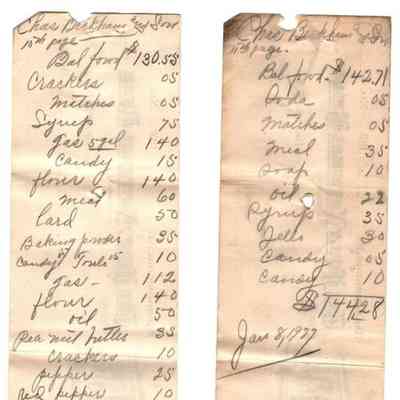 Chas Beckham & Son
10th page
Bal forwd $130.55
Crackers 05
matches 05
Syrup 75
gas 5 gal 140
Candy 15
flour 140
meat 60
lard 50
Baking powder 35
Candy 5 05 10
gas - 112
flour 140
oil 50
Pea nut butter 35
Crackers 10
pepper 25
Red pepper 10
Chas Beckham & Son
11th page.
Bal forwd. $142.71
Soda 05
Matches 05
meal 35
soap 10
oil 22
Syrup 35
Jello 30
Candy 05
Candy 10
$144.28
Jan 8, 1937